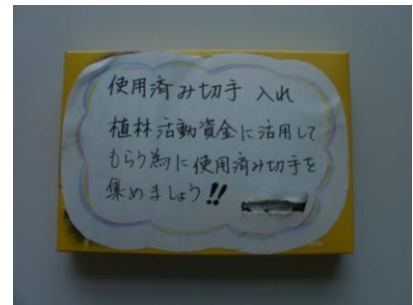 使用済み切手 入れ
植林活動資金に活用して
もらう為に使用済み切手を
集めましょう!!